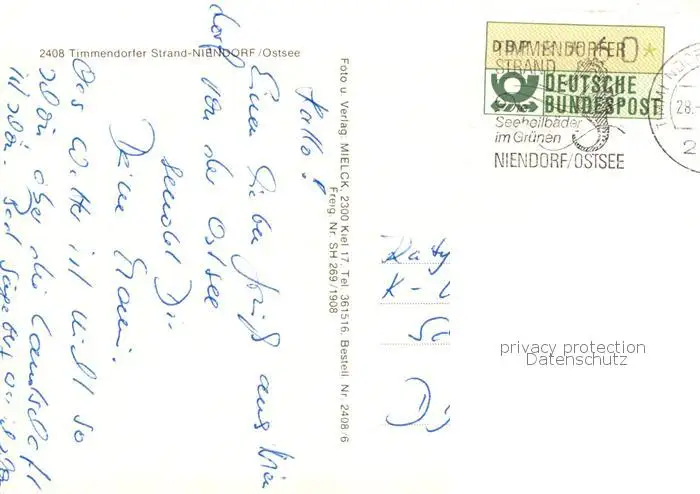 2408 Timmendorfer Strand-NIENDORF/Ostsee
Hallo!
Einen lieben Gruß aus Nien
dorf von der Ostsee
sendet Dir
Deine Mami.
Das Wetter ist nicht so
schön aber die Landschaft
ist schön. Bad Segeberg
Foto u. Verlag: MIELCK, 2300 Kiel 17, Tel. 361516, Bestell Nr. 2408/6
Freig. Nr. SH 269/1908
DBP
TIMMENDORFER
STRAND
DEUTSCHE
BUNDESPOST
Seeheilbäder
im Grünen
NIENDORF/OSTSEE
28.
2
K-
privacy protection
Datenschutz